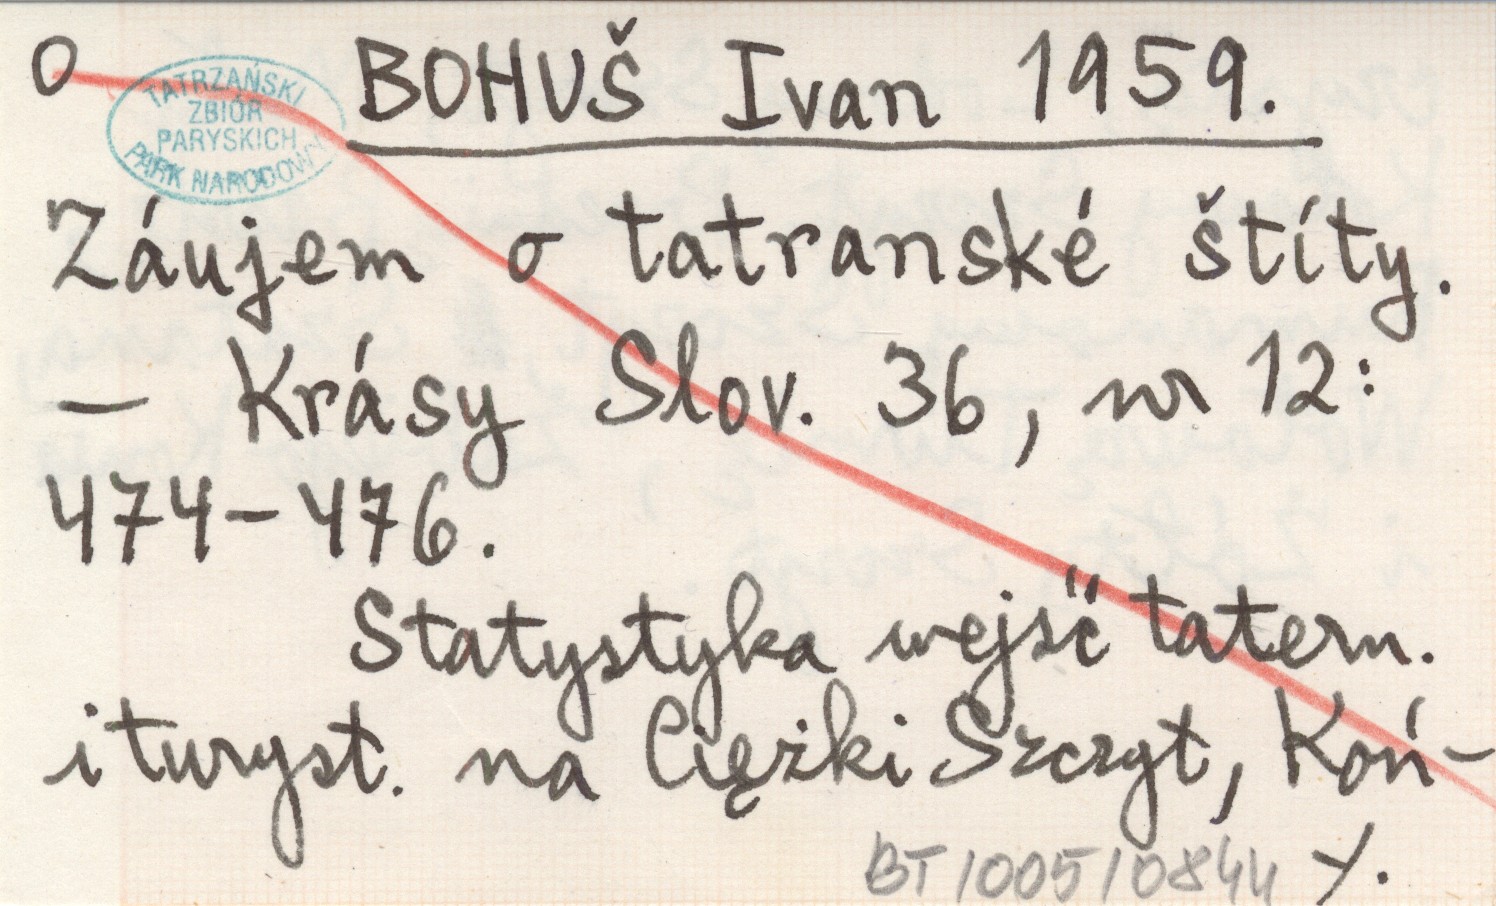 O
BOHUŠ Ivan 1959.
TATRZAŃSKI
ZBIÓR
PARYSKICH
PARK NARODOWY
Záujem o tatranské štíty.
— Krásy Slov. 36, nr 12:
474-476.
Statystyka wejść tatern.
i turyst. na Ciężki Szczyt, Koń-
BT/005/0844 /.